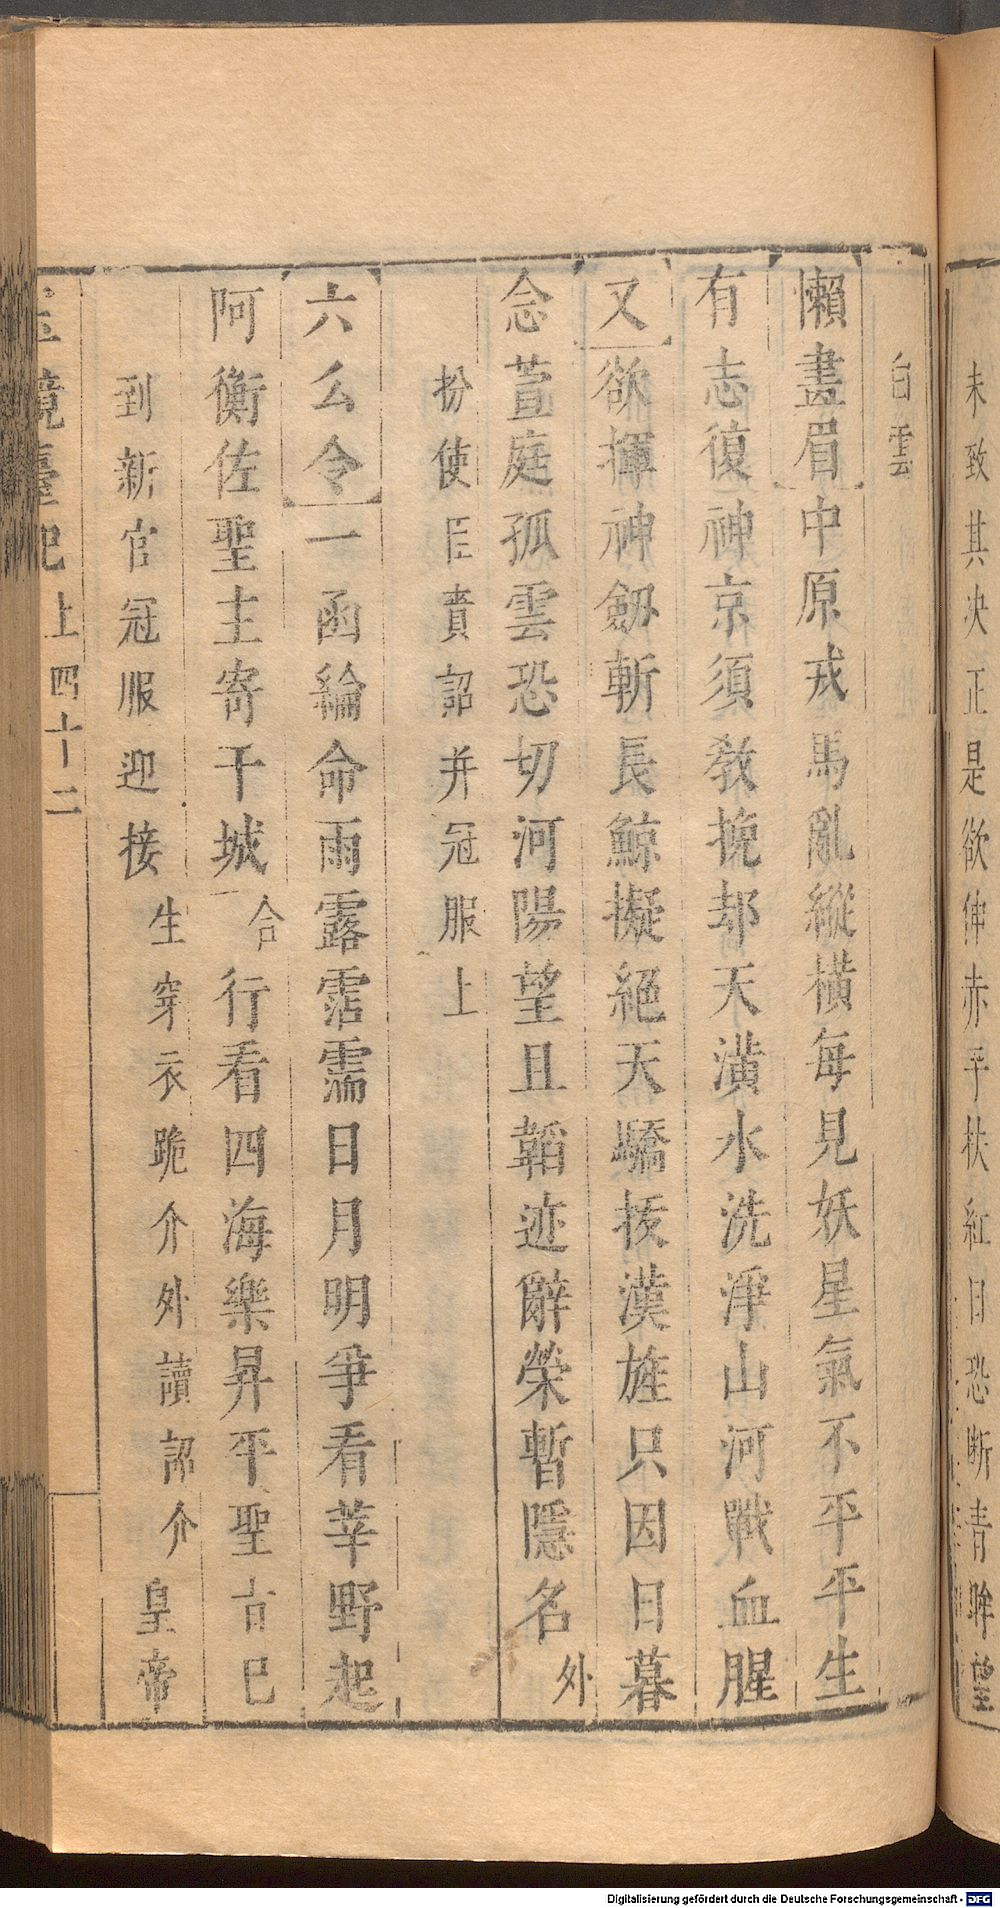 未致其决正是欲伸赤手扶紅日恐断青眸望
白雲
懶畫眉中原戎馬亂縱橫每見妖星氣不平平生
有志復神京須教挽却天潢水洗淨山河戰血腥
又欲揮神劔斬長鯨擬絕天驕拔漢旌只因日暮
念萱庭孤雲恐切河陽望且韜迹辭榮暫隱名外
扮使臣賫詔并冠服上
六么令一函綸命雨露霑濡日月明爭看莘野起
阿衡佐聖主寄干城合行看四海樂昇平聖旨已
到新官冠服迎接生穿衣跪介外讀詔介皇帝
玉鏡臺記上四十二
Digitalisierung gefördert durch die Deutsche Forschungsgemeinschaft - DFG